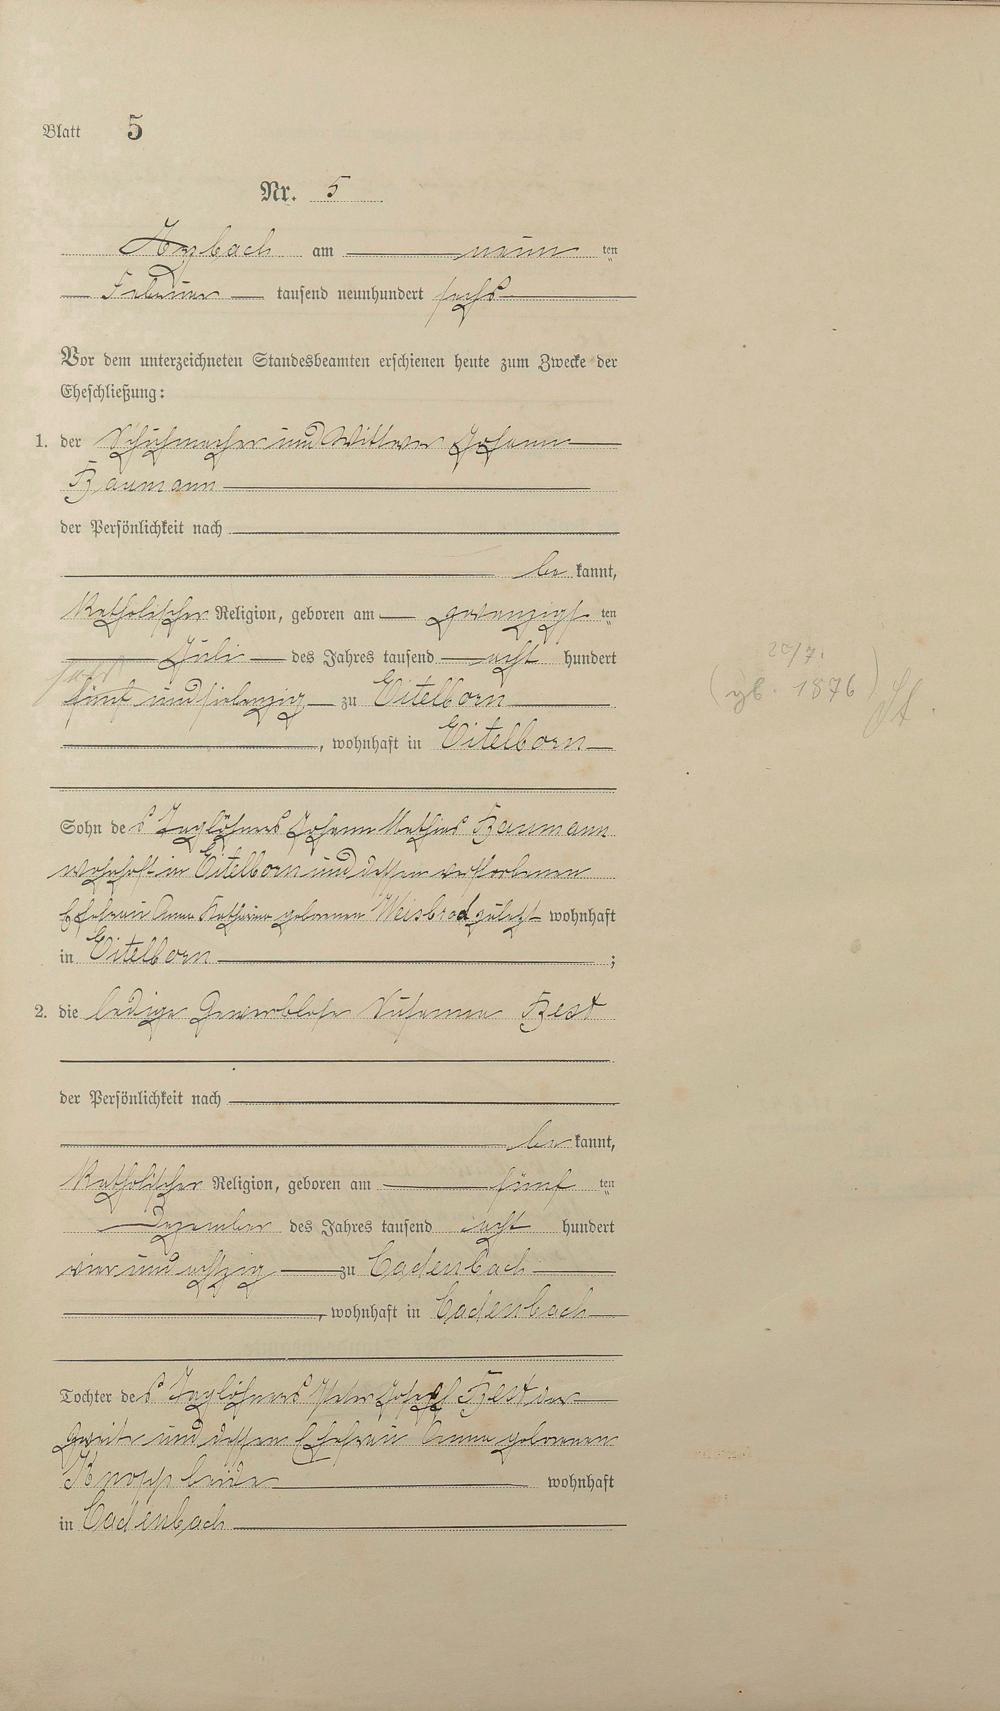 Blatt 5
Nr. 5
Arzbach am neun ten
Februar tausend neunhundert sechs
Vor dem unterzeichneten Standesbeamten erschienen heute zum Zwecke der
Eheschließung:
1. der Schuhmacher und Wittwer Johann
Baumann
der Persönlichkeit nach
be kannt,
katholischer Religion, geboren am zwanzigs ten
Juli des Jahres tausend acht hundert
sechs
fünf und siebenzig zu Eitelborn
20/7.
(gb. 1876)
, wohnhaft in Eitelborn
Sohn des Taglöhners Johann Mathias Baumann
wohnhaft in Eitelborn und dessen verstorbenen
Ehefrau Anna Katharina geborenen Weisbrod zuletzt wohnhaft
in Eitelborn ;
2. die ledige Gewerblose Susanna Best
der Persönlichkeit nach
be kannt,
katholischer Religion, geboren am fünf ten
Dezember des Jahres tausend acht hundert
vier und achtzig zu Cadenbach
, wohnhaft in Cadenbach
Tochter des Taglöhners Peter Joseph Best der
Zweite und dessen Ehefrau Anna geborenen
Knopp beide wohnhaft
in Cadenbach